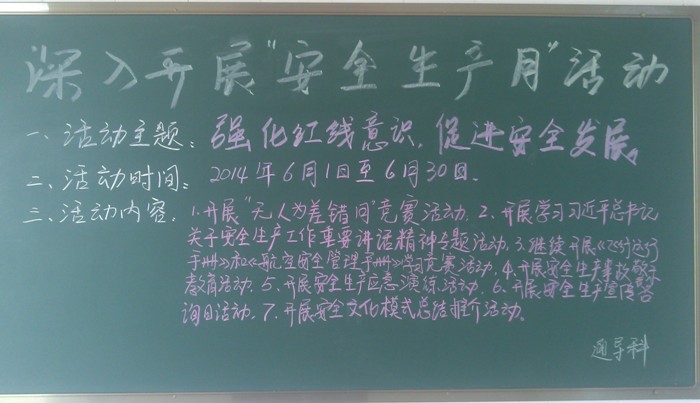 深入开展"安全生产月"活动
一、活动主题：强化红线意识，促进安全发展。
二、活动时间：2014年6月1日至6月30日。
三、活动内容：1.开展"无人为差错月"竞赛活动. 2.开展学习习近平总书记
关于安全生产工作重要讲话精神专题活动. 3.继续开展《飞行运行
手册》和《航空安全管理手册》学习竞赛活动. 4.开展安全生产事故警示
教育活动. 5.开展安全生产应急演练活动. 6.开展安全生产宣传咨
询日活动. 7.开展安全文化模式总结推介活动。
通导科